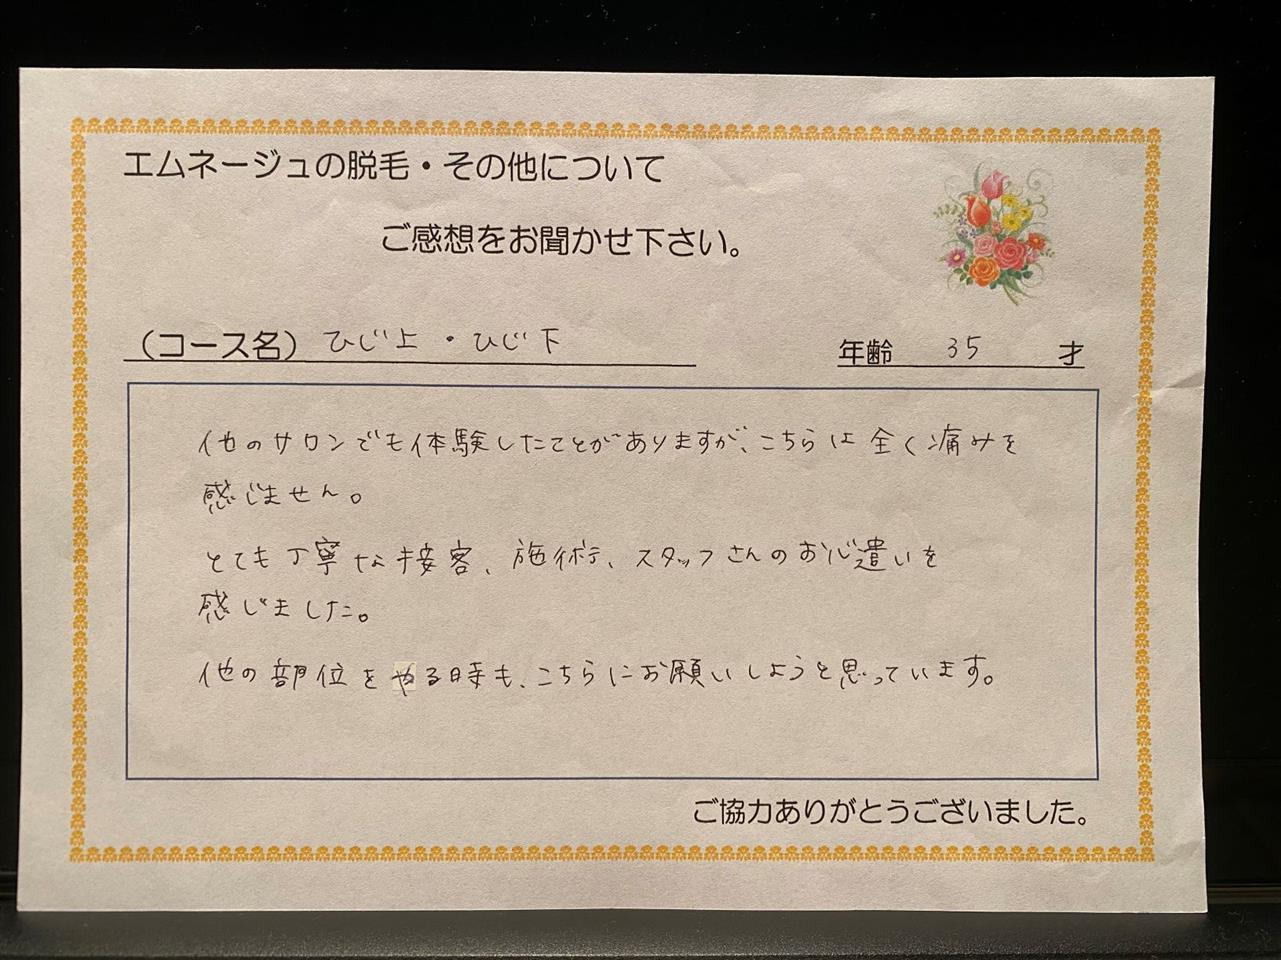 エムネージュの脱毛・その他について
ご感想をお聞かせ下さい。
（コース名）ひじ上・ひじ下
年齢 35 才
他のサロンでも体験したことがありますが、こちらは全く痛みを
感じません。
とても丁寧な接客、施術、スタッフさんのお心遣いを
感じました。
他の部位をやる時も、こちらにお願いしようと思っています。
ご協力ありがとうございました。